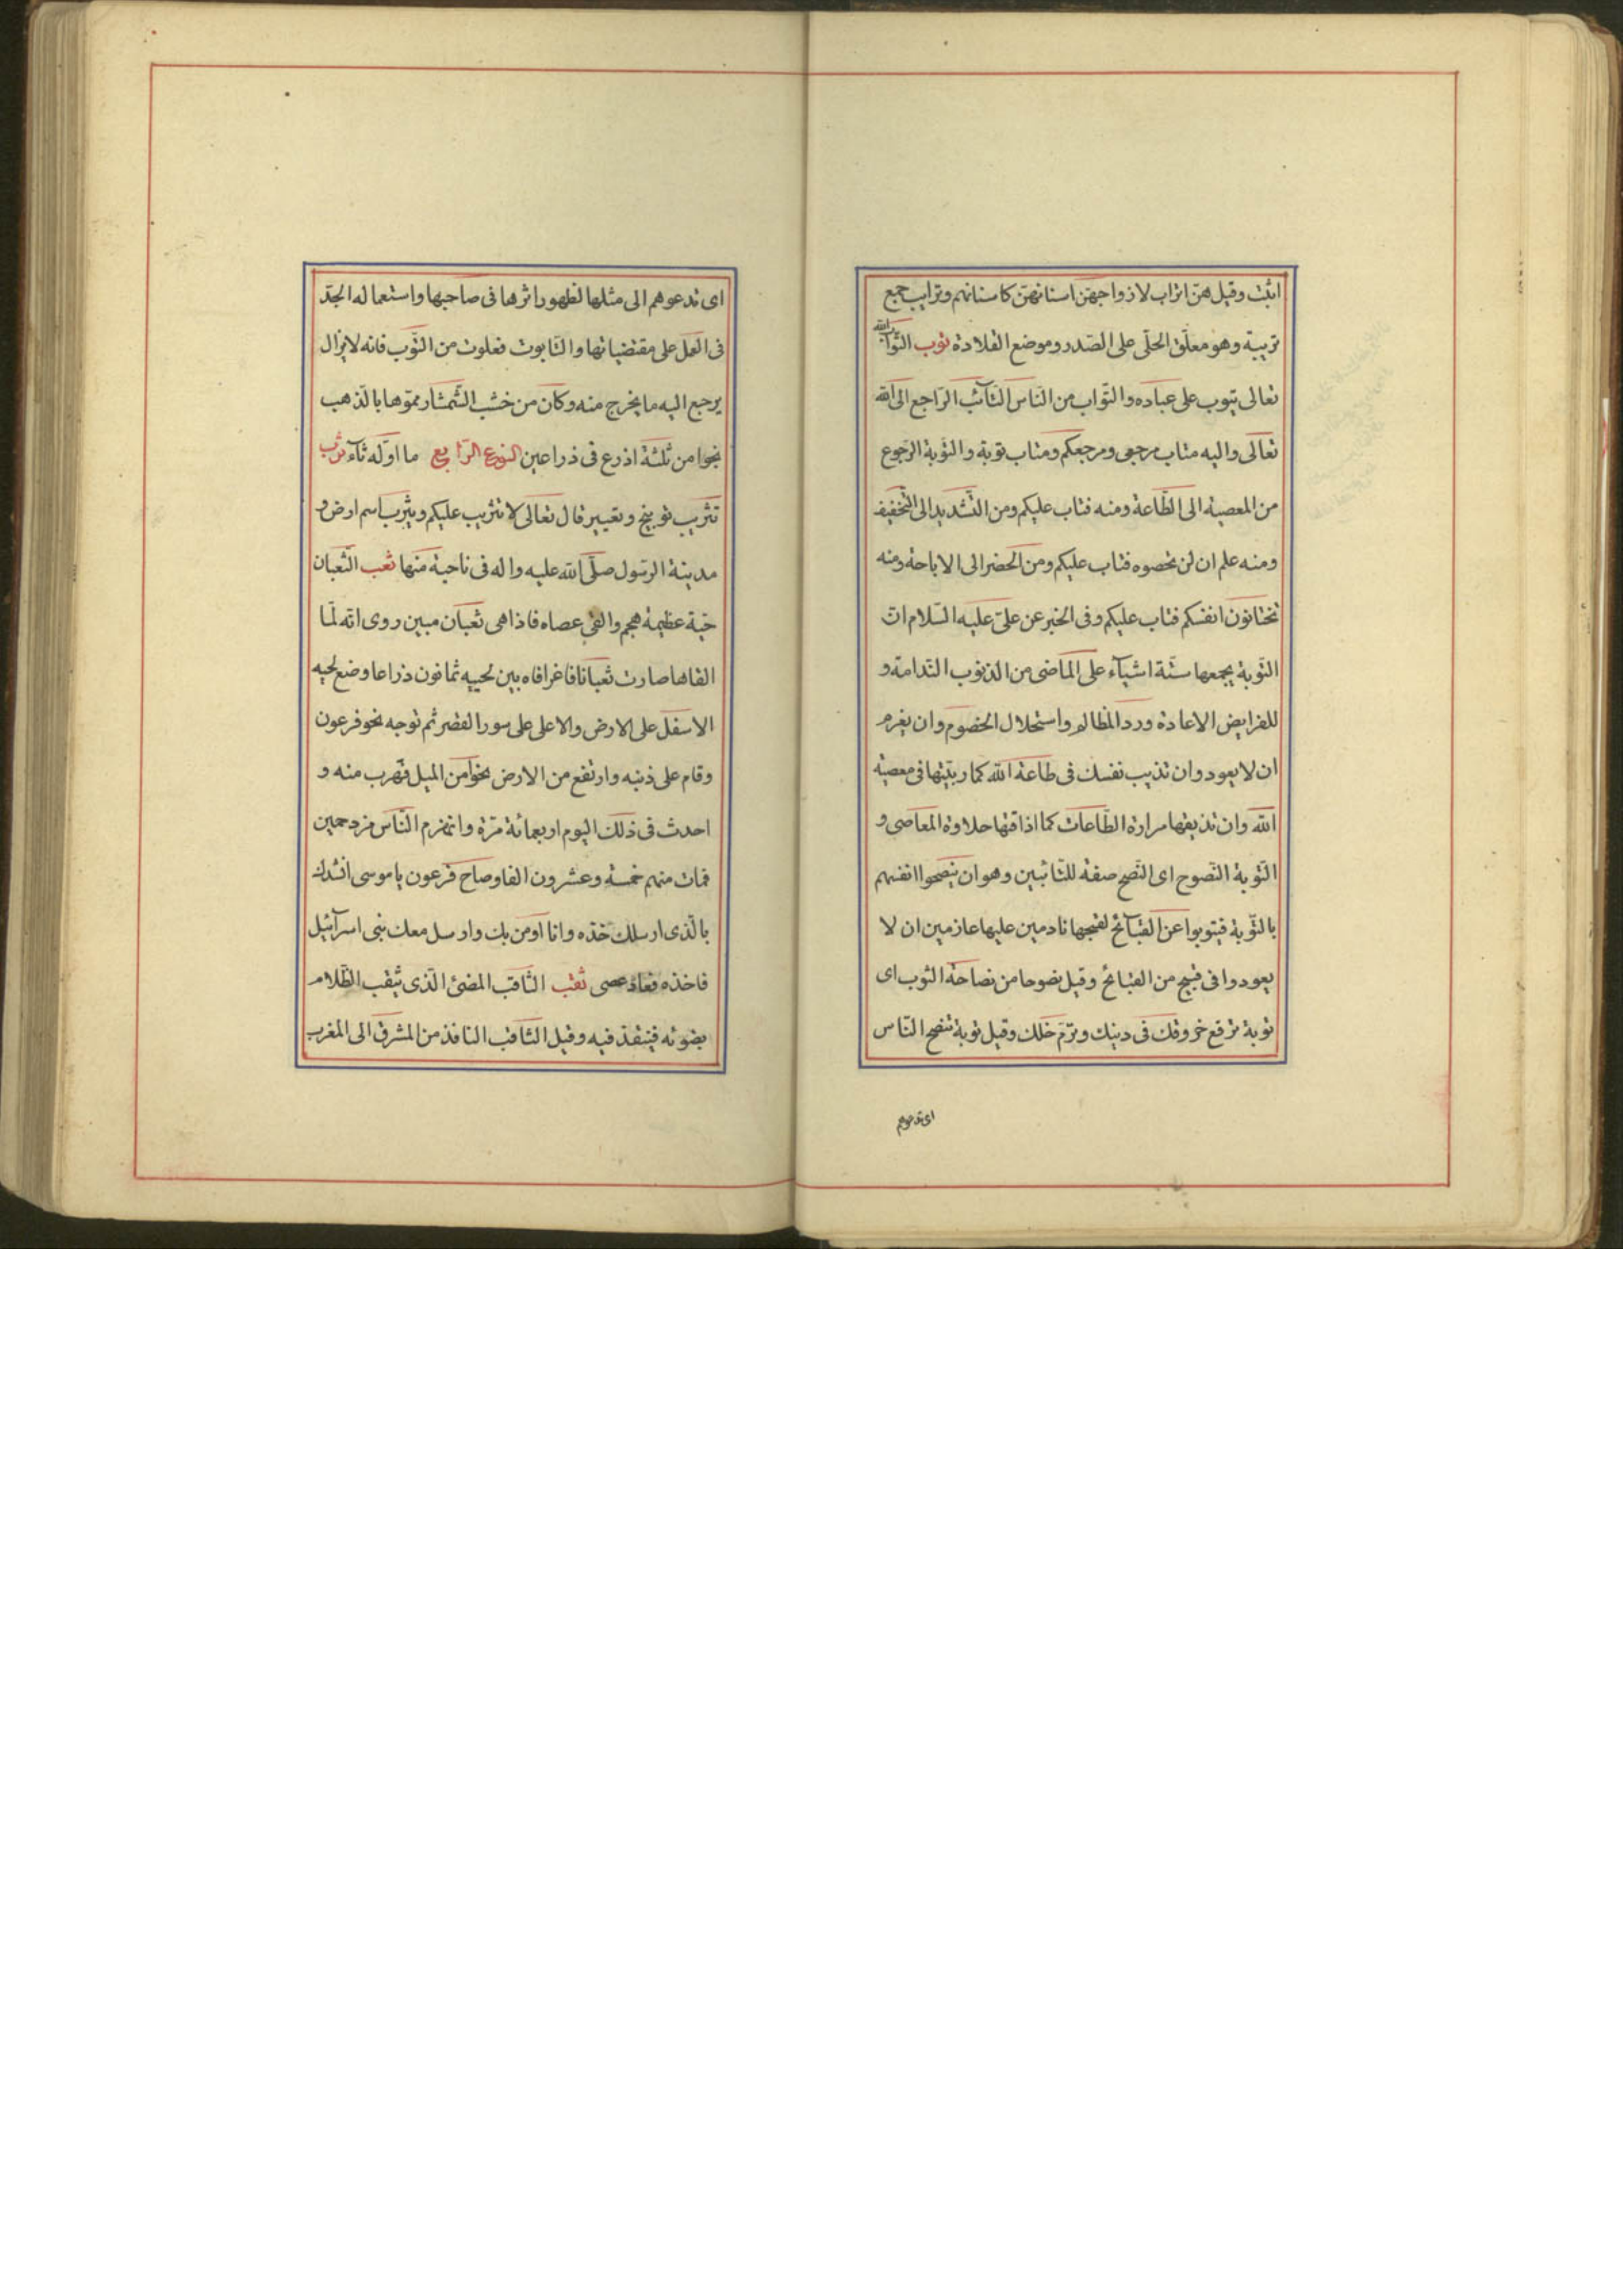 اثبت وقيل هنّ اتراب لازواجهنّ اسنانهنّ كاسنانهم وترايب جمع
تريبة وهو معلّق الحلى على الصّدر وموضع القلادة توب التوّاب الله
تعالى يتوب على عباده والتوّاب من النّاس التّآئب الرّاجع الى الله
تعالى واليه متاب مرجعى ومرجعكم ومتاب توبة والتّوبة الرّجوع
من المعصية الى الطّاعة ومنه فتاب عليكم ومن التّشديد الى التّخفيف
ومنه علم ان لن تحصوه فتاب عليكم ومن الحضر الى الاباحة ومنه
تختانون انفسكم فتاب عليكم وفى الخبر عن علىّ عليه السّلام انّ
التّوبة يجمعها ستّة اشيآء على الماضى من الذنوب النّدامة و
للفرايض الاعادة وردّ المظالم واستحلال الخصوم وان يعزم
ان لا يعود وان تذيب نفسك فى طاعة الله كما ربّيتها فى معصية
الله وان تذيقها مرارة الطّاعات كما اذاقتها حلاوة المعاصى و
التّوبة النّصوح اى النّصح صفة للتّائبين وهو ان ينصحوا انفسهم
بالتّوبة فيتوبوا عن القبآئح لقبحها نادمين عليها عازمين ان لا
يعودوا فى قبيح من القبائح وقيل نصوحا من نصاحة الثوب اى
توبة ترفع خروقك فى دينك وترمّ خللك وقيل توبة تنصح النّاس
اى تدعوهم
اى تدعوهم الى مثلها لظهور اثرها فى صاحبها واستعماله الجدّ
فى العمل على مقتضياتها والتّابوت فعلوت من التّوب فانه لا يزال
يرجع اليه ما يخرج منه وكان من خشب الشّمشار مموّها بالذهب
نحوا من ثلثة اذرع فى ذراعين النوع الرّابع ما اوّله ثآء ثرب
تثريب توبيخ وتعيير قال تعالى لا تثريب عليكم ويثرب اسم ارض و
مدينة الرسول صلّى الله عليه واله فى ناحية منها ثعب الثّعبان
حيّة عظيمة هجم والقى عصاه فاذا هى ثعبان مبين روى انّه لمّا
القاها صارت ثعبانا فاغرا فاه بين لحييه ثمانون ذراعا وضع لحيه
الاسفل على الارض والاعلى على سور القصر ثم توجه نحو فرعون
وقام على ذنبه وارتفع من الارض نحوا من الميل فهرب منه و
احدث فى ذلك اليوم اربعمائة مرّة وانهزم النّاس مزدحمين
فمات منهم خمسة وعشرون الفا وصاح فرعون يا موسى انشدك
بالّذى ارسلك خذه وانا اومن بك وارسل معك بنى اسرآئيل
فاخذه فعاد عصى ثقب الثّاقب المضئ الّذى يثقب الظّلام
بضوئه فينفذ فيه وقيل الثّاقب النافذ من المشرق الى المغرب